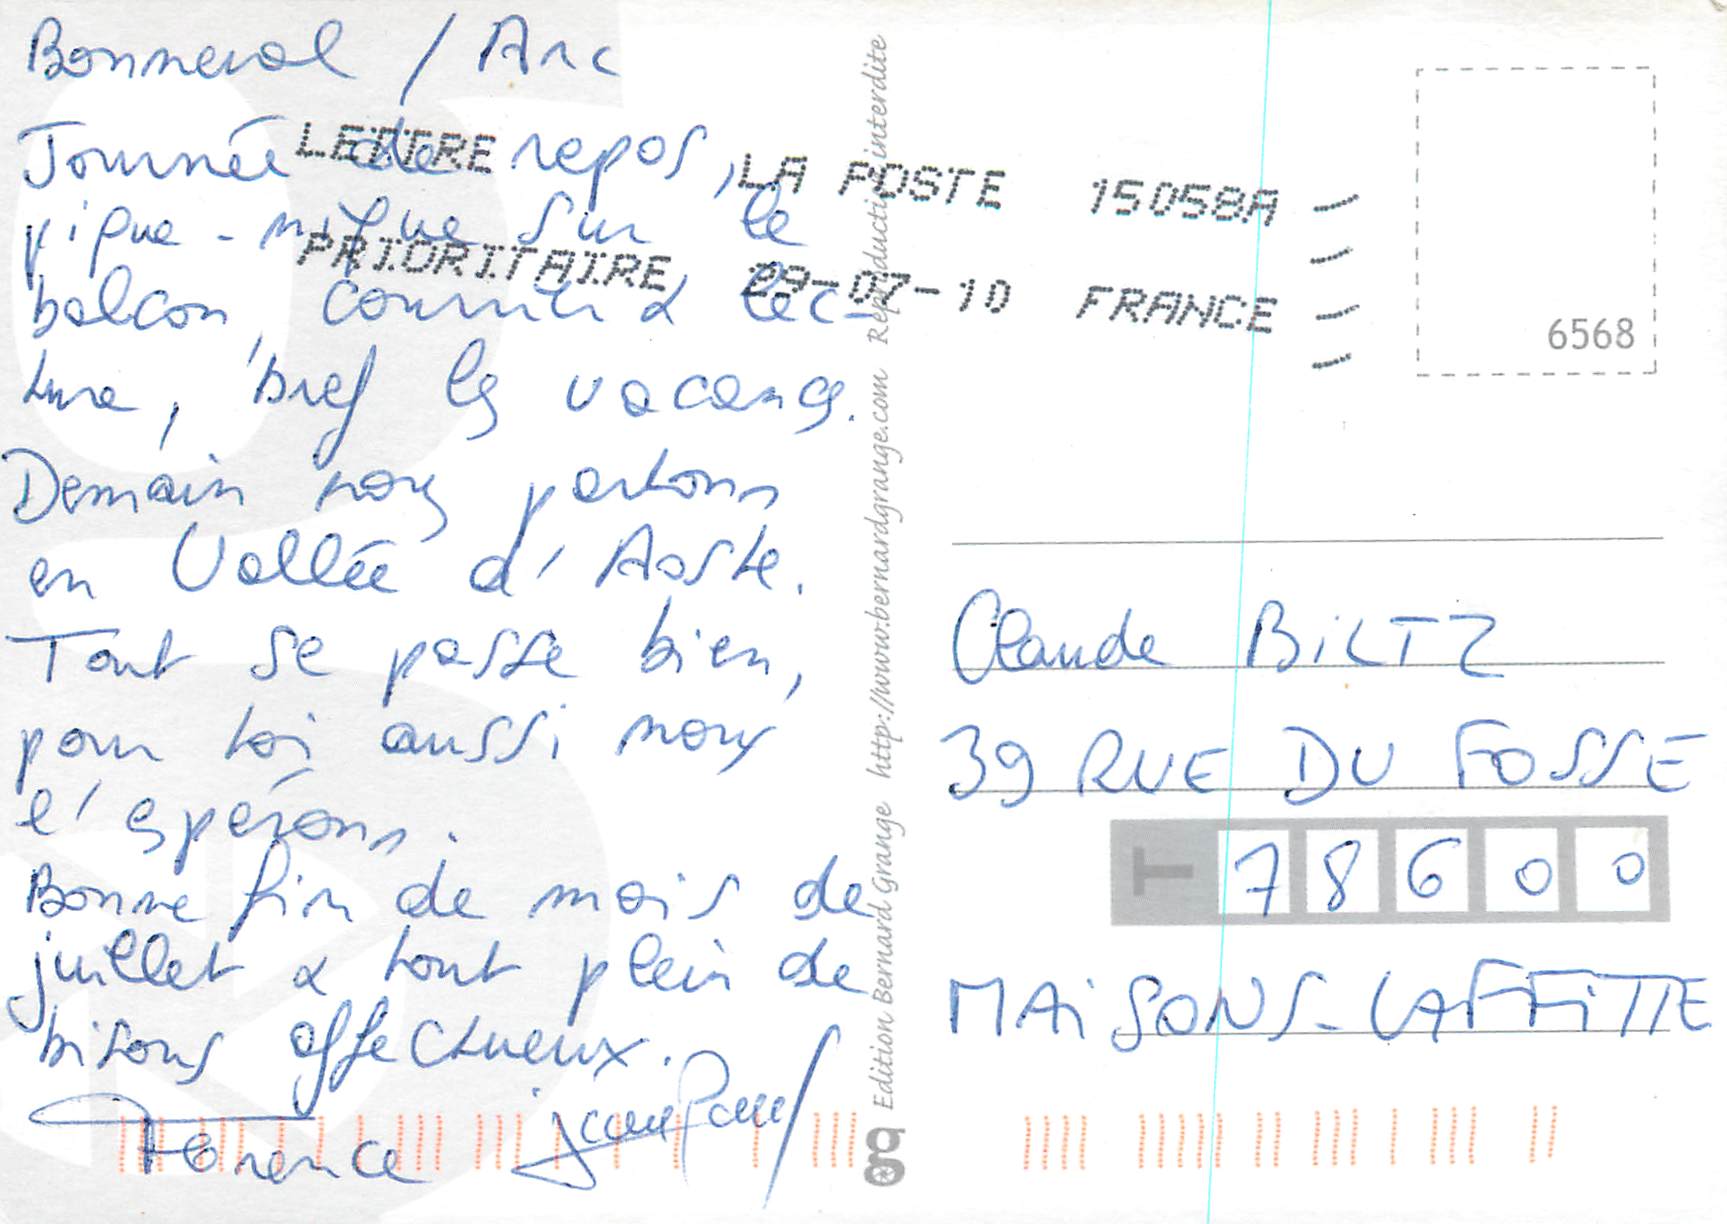 Bonneval / Arc
Journée de repos,
pique-nique sur le
balcon, courrier & lec-
ture, bref les vacances.
Demain nous partons
en Vallée d'Aoste.
Tout se passe bien,
pour toi aussi nous
l'espérons.
Bonne fin de mois de
juillet & tout plein de
bisous affectueux.
Florence Jean Paul
LETTRE LA POSTE 15058A
PRIORITAIRE 29-07-10 FRANCE
Edition Bernard Grange http://www.bernardgrange.com Reproduction interdite
6568
Claude BiLTZ
39 RUE DU FOSSE
78600
MAiSONS-LAFFiTTE